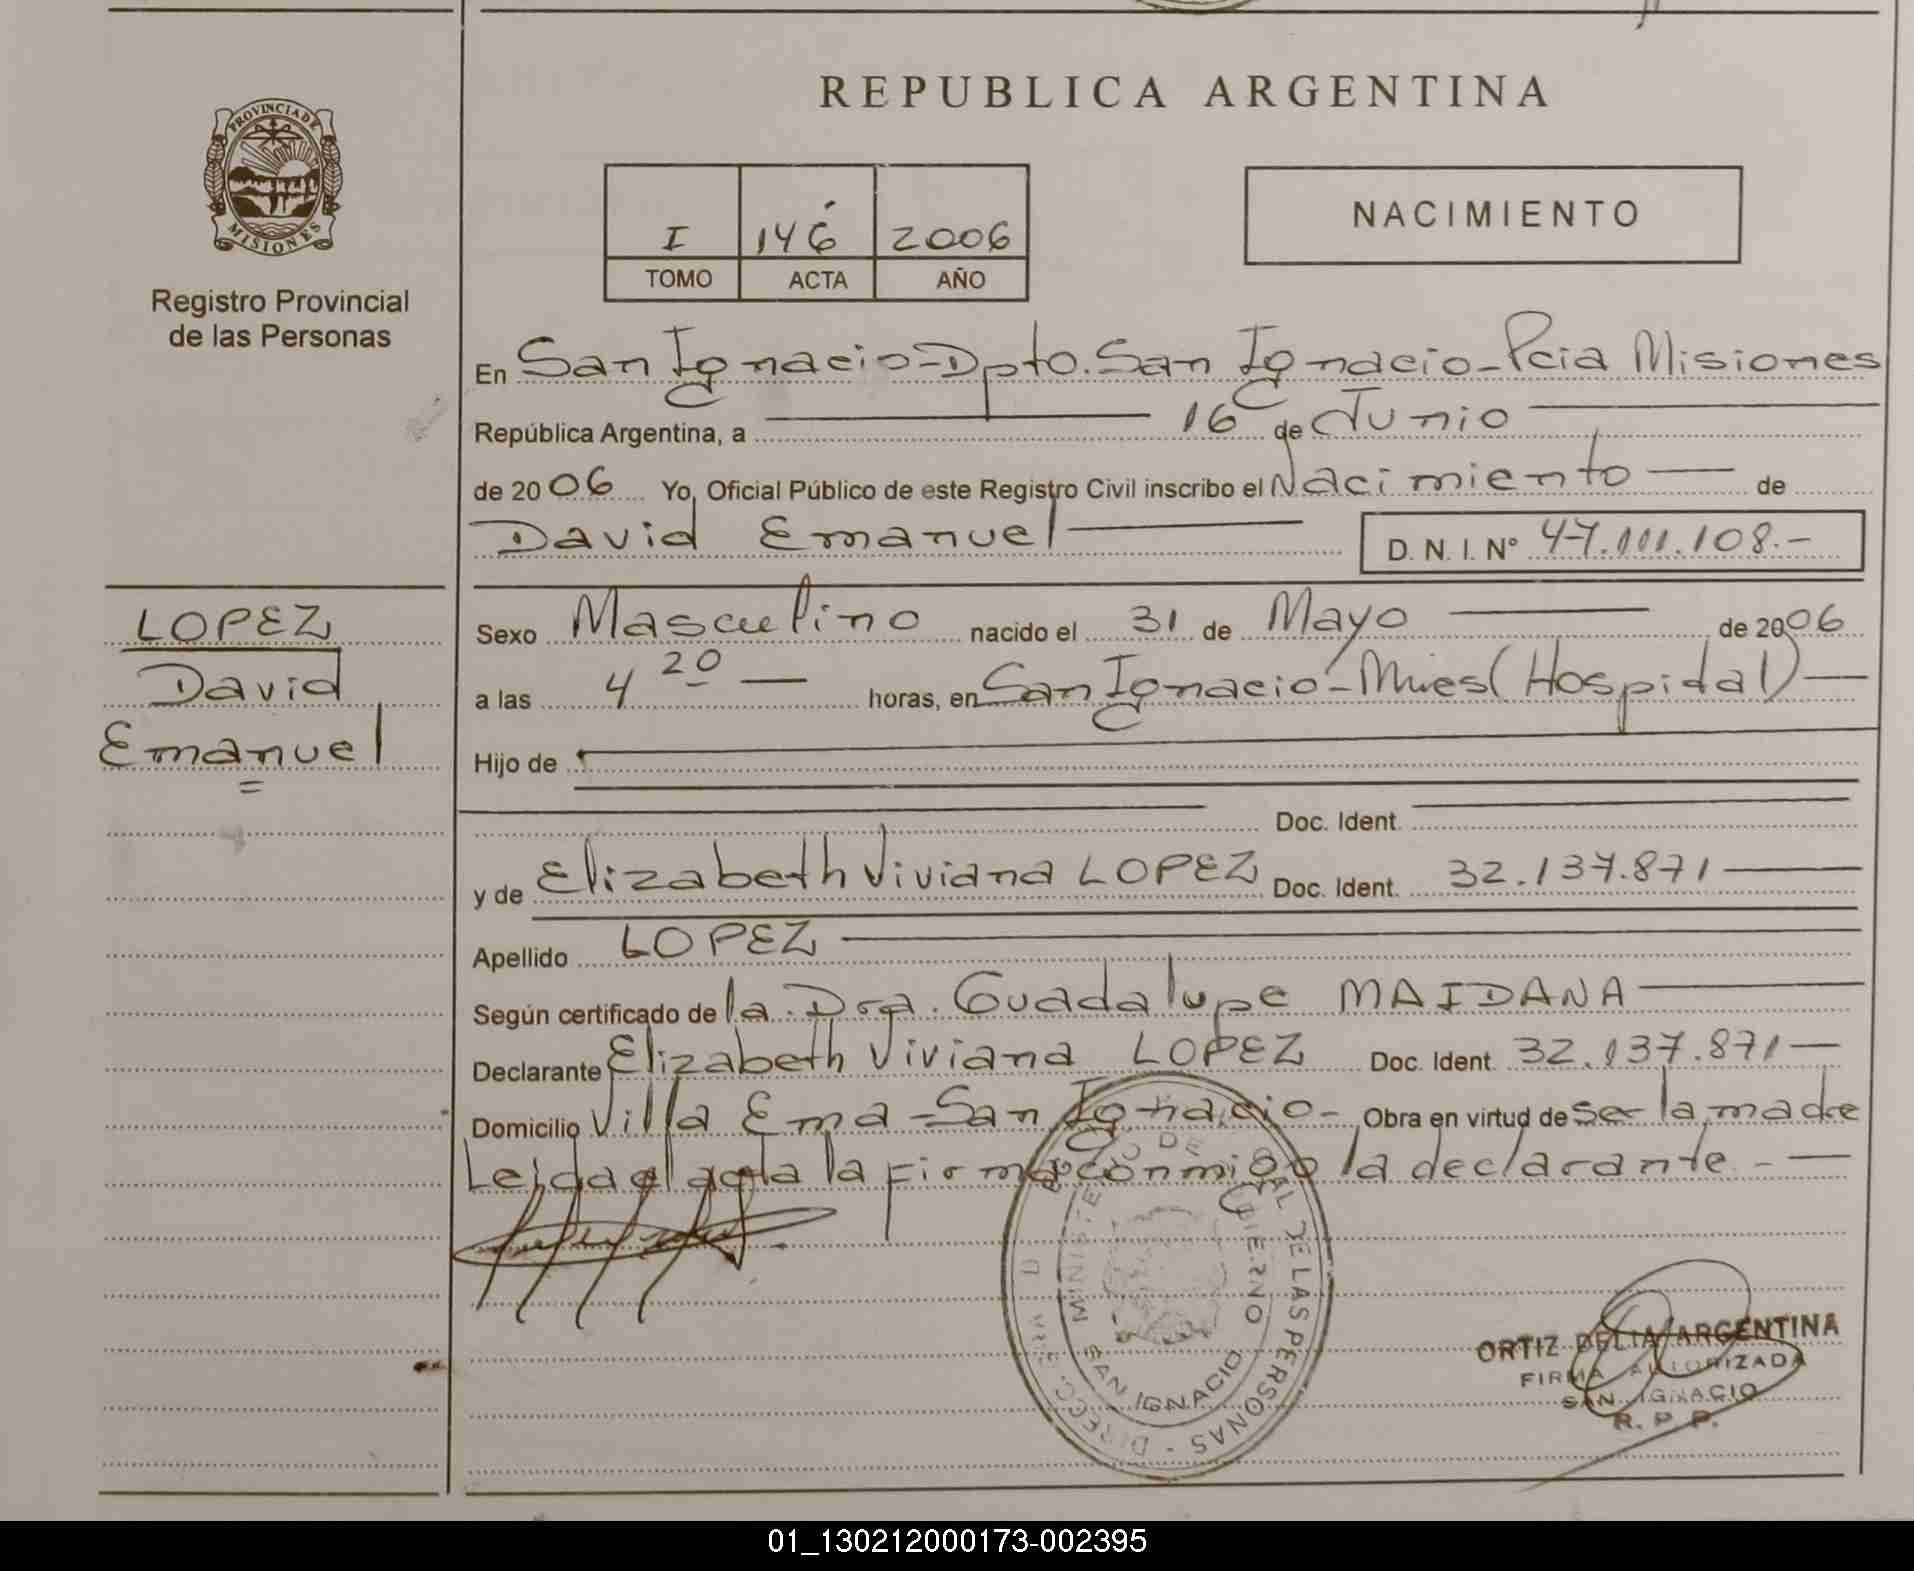 REPUBLICA ARGENTINA
PROVINCIA DE MISIONES
Registro Provincial
de las Personas
I 146 2006
TOMO ACTA AÑO
NACIMIENTO
En San Ignacio-Dpto. San Ignacio-Pcia Misiones
República Argentina, a 16 de Junio
de 2006 Yo, Oficial Público de este Registro Civil inscribo el Nacimiento de
David Emanuel D. N. I. Nº 47.111.108.-
LOPEZ
David
Emanuel
Sexo Masculino nacido el 31 de Mayo de 2006
a las 4 20 horas, en San Ignacio-Mnes (Hospital)
Hijo de
Doc. Ident.
y de Elizabeth Viviana LOPEZ Doc. Ident. 32.137.871
Apellido LOPEZ
Según certificado de la Dra. Guadalupe MAIDANA
Declarante Elizabeth Viviana LOPEZ Doc. Ident. 32.137.871
Domicilio Villa Ema-San Ignacio- Obra en virtud de ser la madre
Leida el acta la firma conmigo la declarante.-
DE LAS PERSONAS - DIRECC.
GOBIERNO
SAN IGNACIO
ORTIZ DELIA ARGENTINA
FIRMA AUTORIZADA
SAN IGNACIO
R. P. P.
01_130212000173-002395